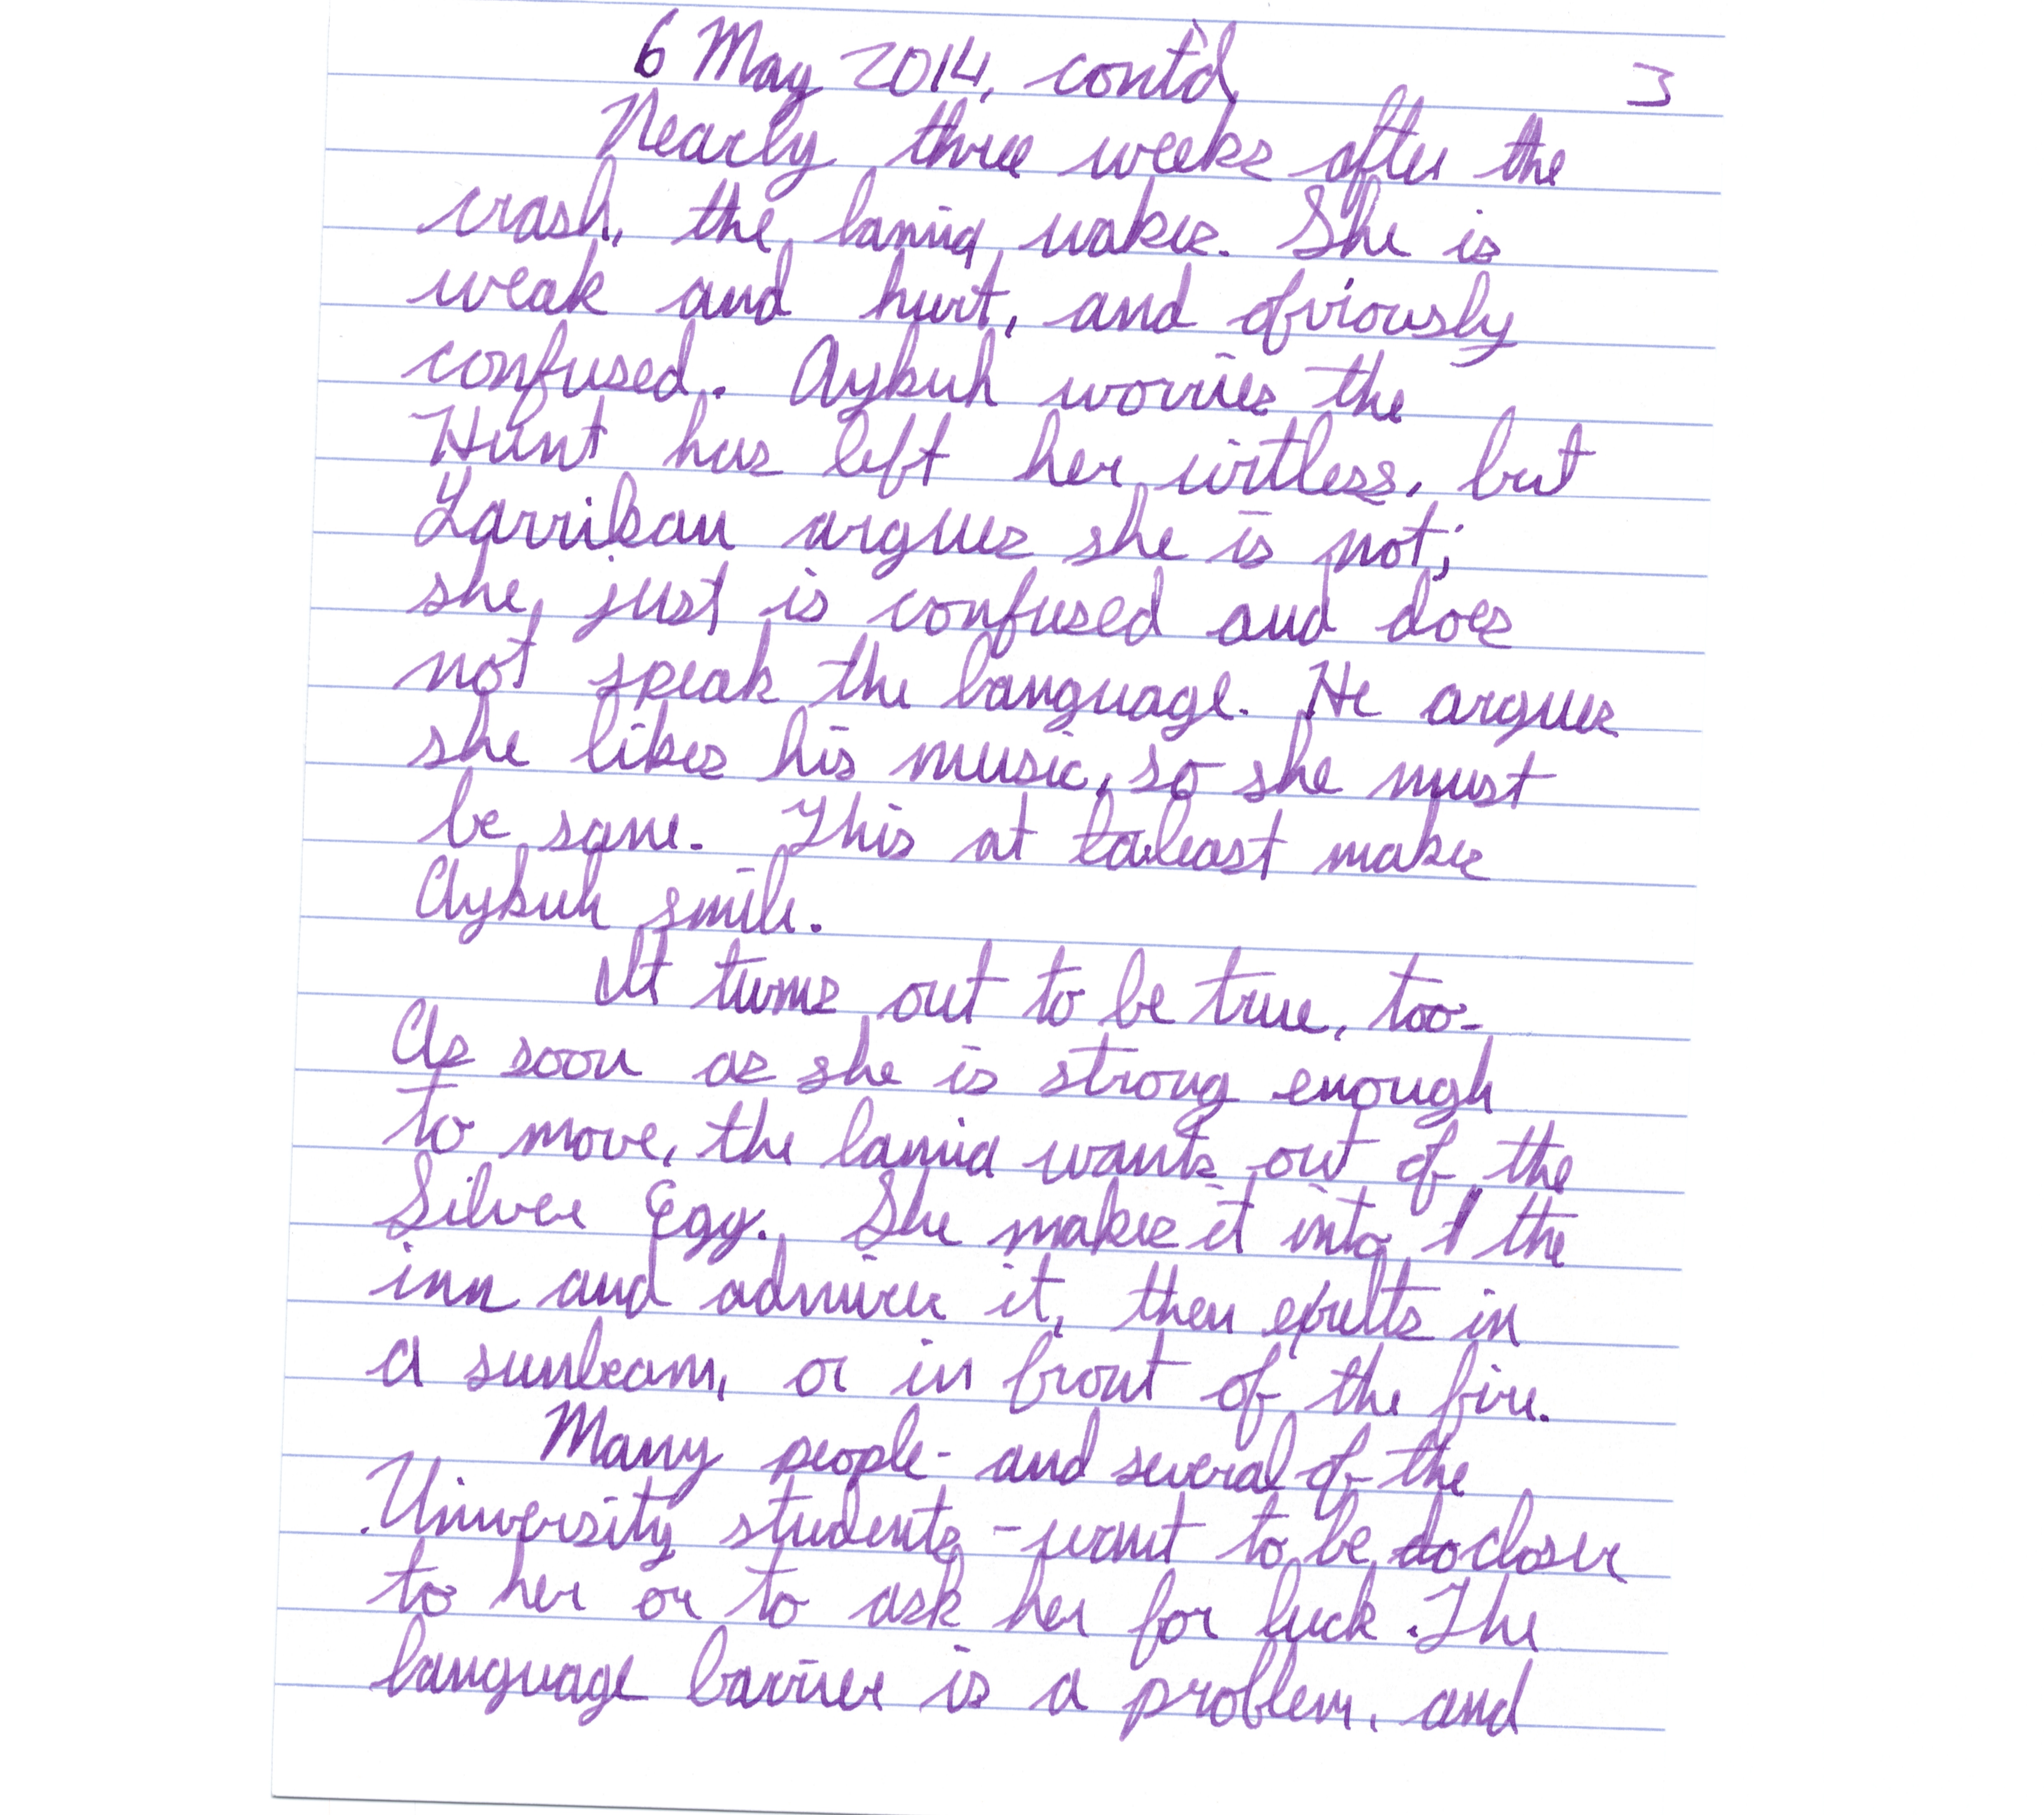 6 May 2014, cont'd 3
Nearly three weeks after the
crash, the lamia wakes. She is
weak and hurt, and obviously
confused. Aykuh worries the
Hunt has left her witless, but
Yarrikau argues she is not;
she just is confused and does
not speak the language. He argues
she likes his music, so she must
be sane. This at least makes
Aykuh smile.
It turns out to be true, too-
As soon as she is strong enough
to move, the lamia wants out of the
Silver Egg. She makes it into the
inn and admires it, then exults in
a sunbeam, or in front of the fire.
Many people - and several of the
University students - want to be closer
to her or to ask her for luck. The
language barrier is a problem, and